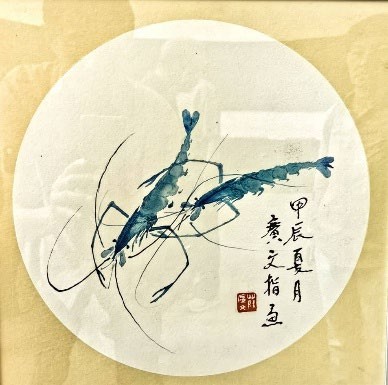 甲辰夏月
廣文指画